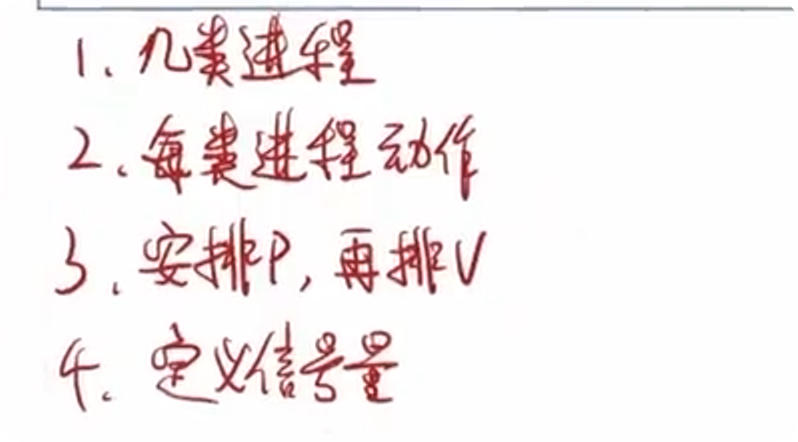 1、几类进程
2、每类进程动作
3、安排P，再排V
4、定义信号量